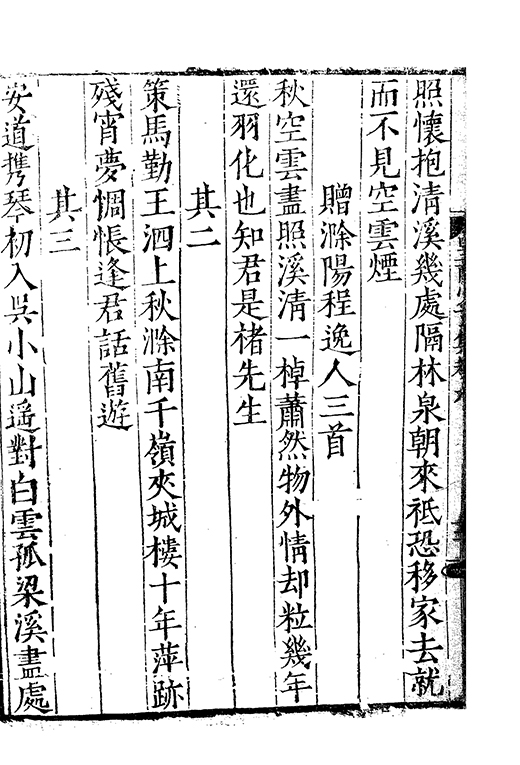 照懷抱清溪幾處隔林泉朝來祗恐移家去就
而不見空雲煙
贈滁陽程逸人三首
秋空雲盡照溪清一棹蕭然物外情却粒幾年
還羽化也知君是禇先生
其二
策馬勤王泗上秋滁南千嶺夾城樓十年萍跡
殘宵夢惆悵逢君話舊遊
其三
安道携琴初入吳小山遥對白雲孤梁溪盡處